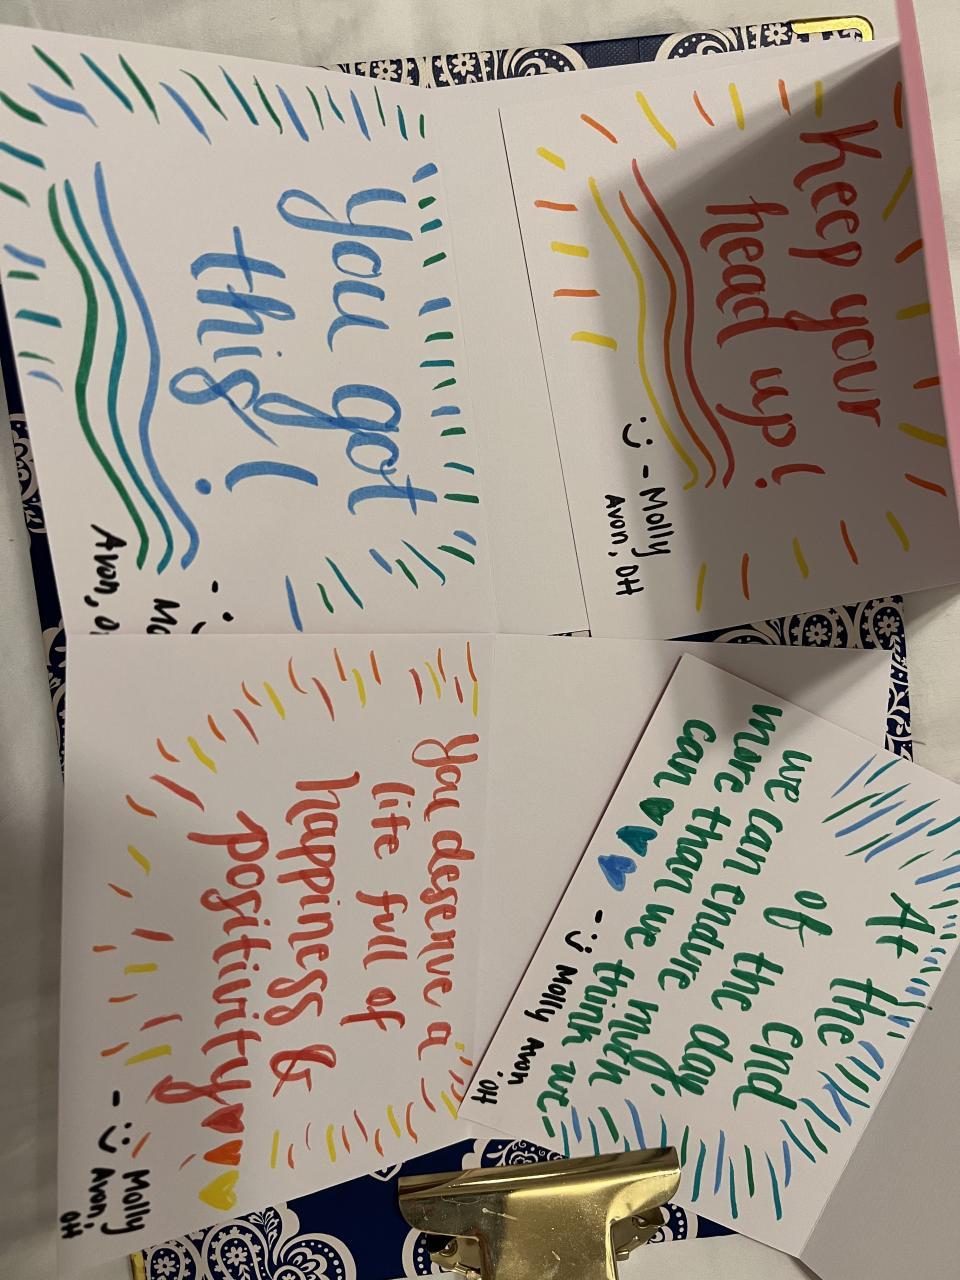 Keep your
head up!
:) - Molly
Avon, OH
At the end
of the day,
we can endure much
more than we think we
can
- :) Molly Avon, OH
You got
this!
Mo
Avon, O
You deserve a
life full of
happiness &
positivity
- :) Molly
Avon,
OH